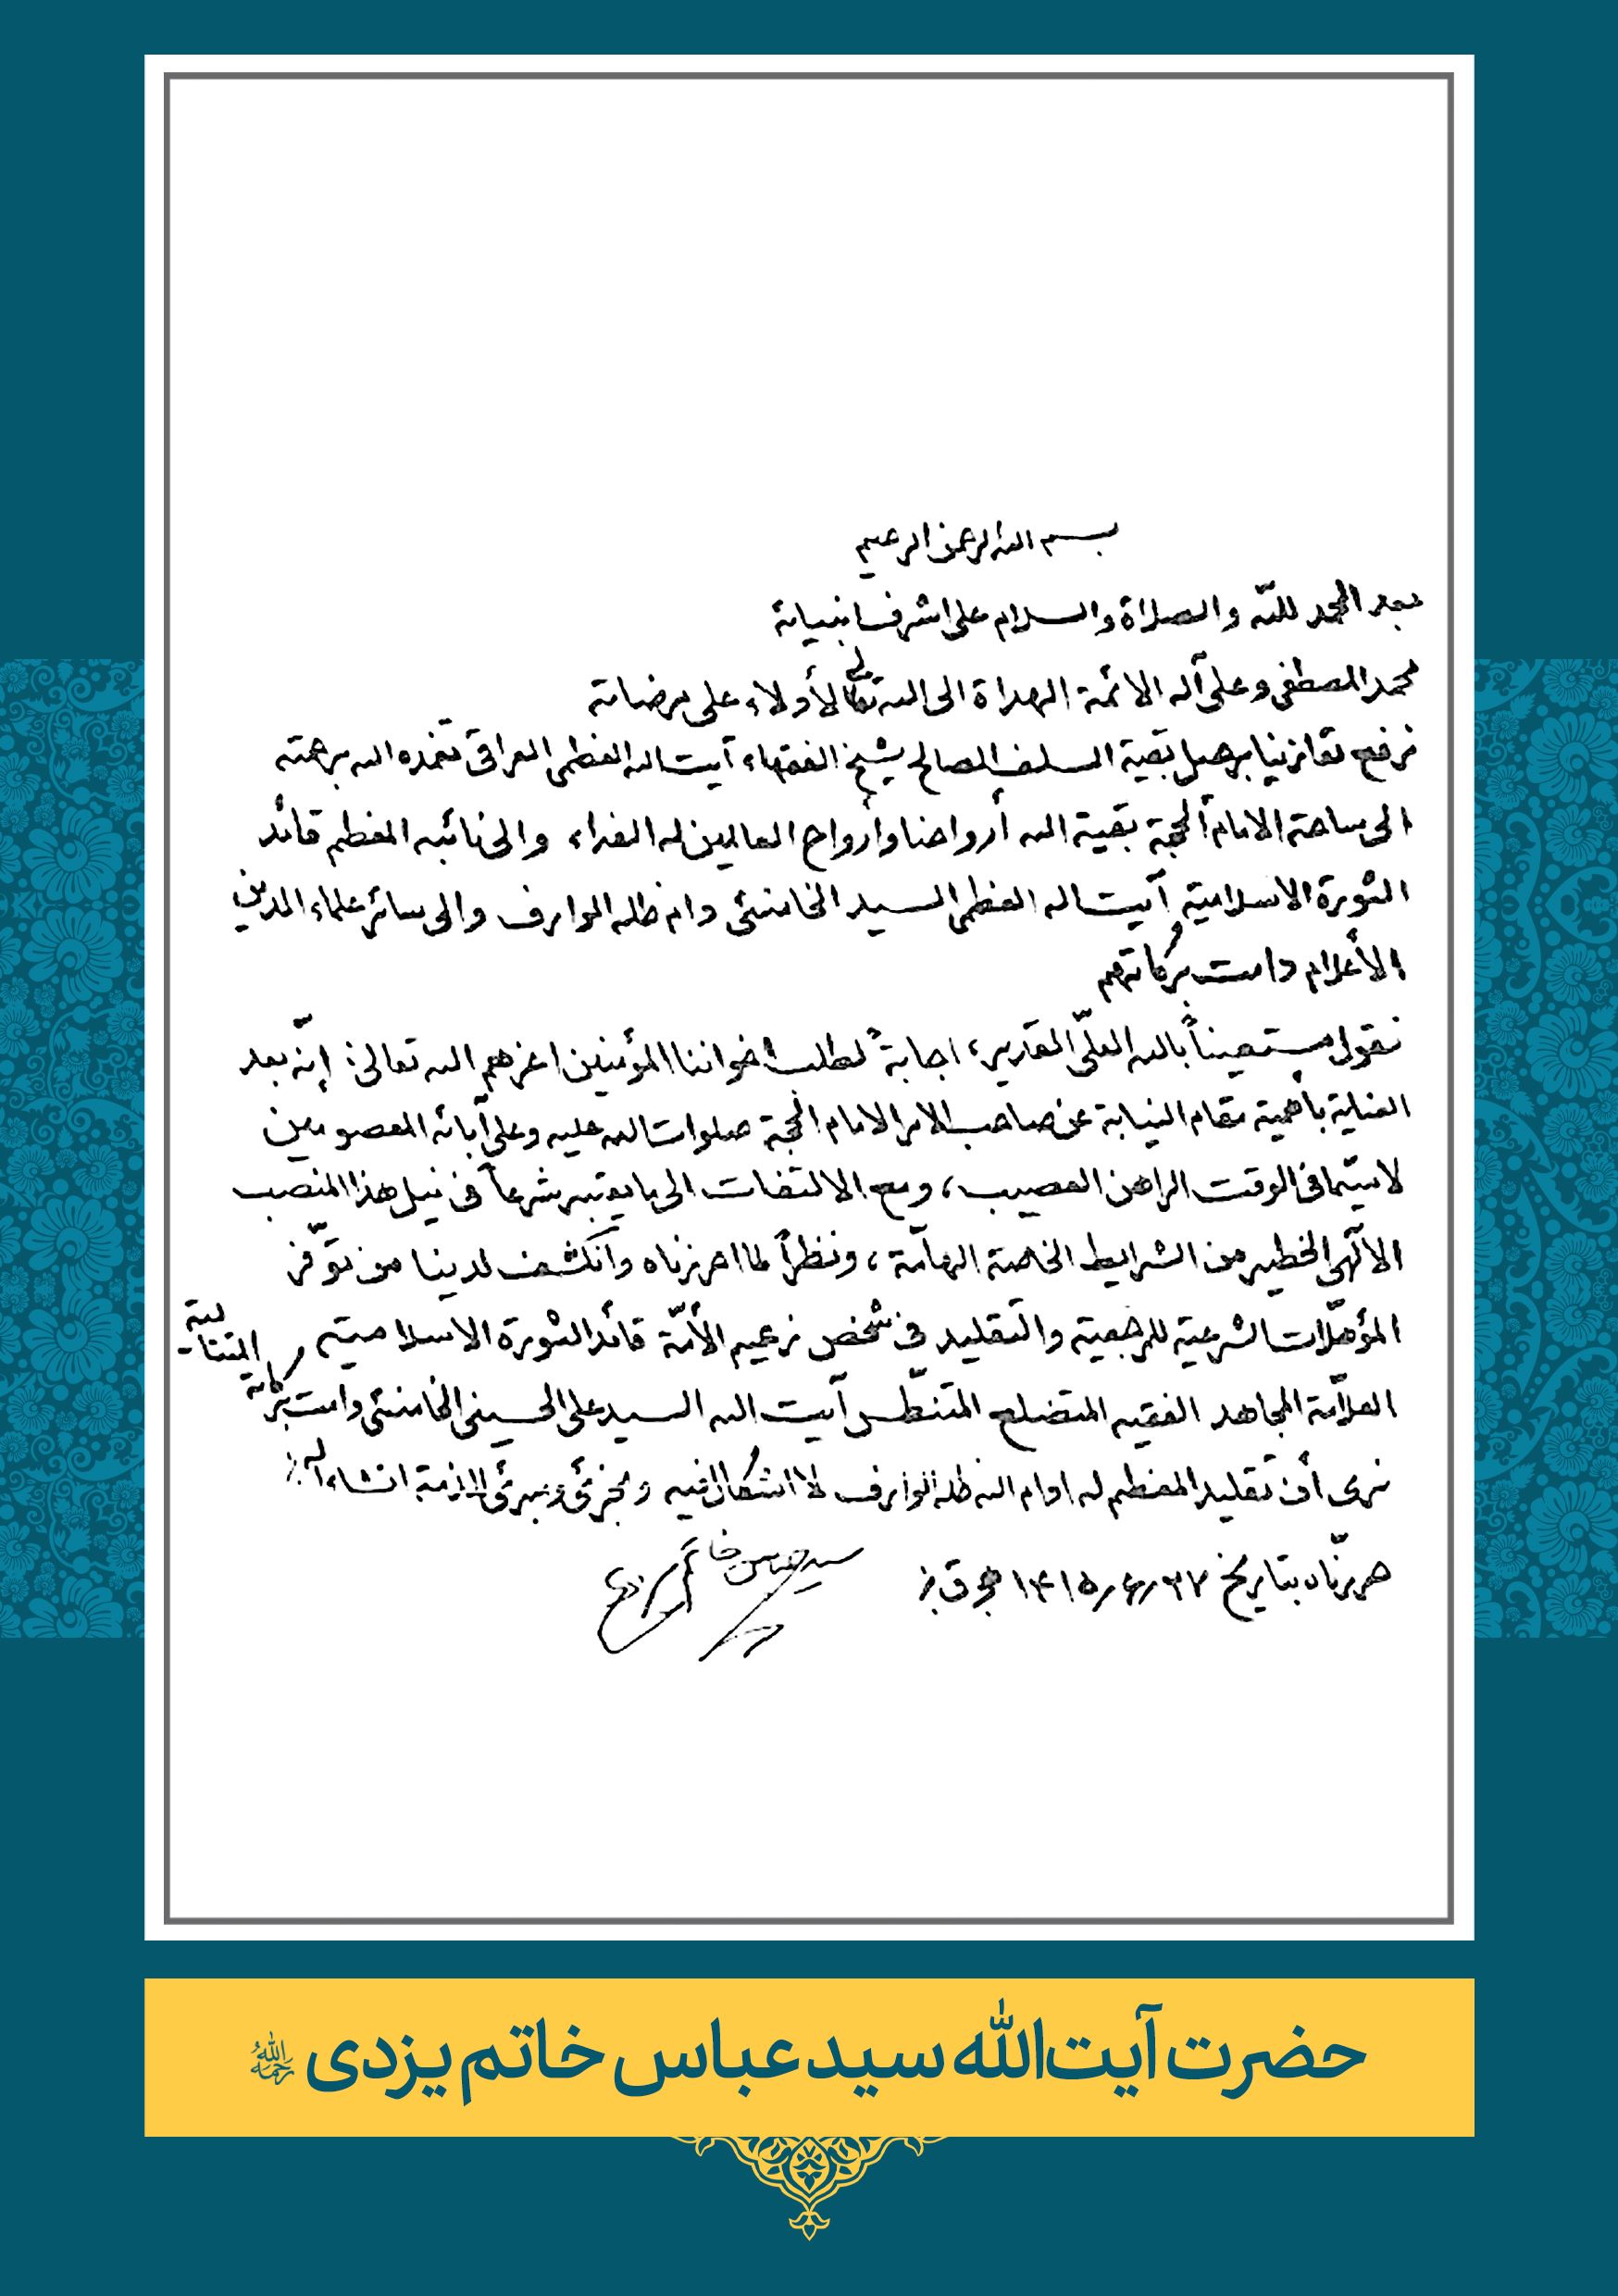 بسم الله الرحمن الرحيم
بعد الحمد للّه والصلاة والسلام على اشرف انبيائه
محمد المصطفى وعلى آله الائمة الهداة الى الله تعالى الأدلاء على مرضاته
نرفع تعازينا برحيل بقية السلف الصالح شيخ الفقهاء آيت الله العظمى العراقي تغمده الله برحمته
الى ساحة الامام الحجة بقية الله أرواحنا وأرواح العالمين له الفداء والى نائبه المعظم قائد
الثورة الاسلامية آيت الله العظمى السيد الخامنئي دام ظله الوارف والى سائر علماء الدين
الأعلام دامت بركاتهم
نقول مستعيناً بالله العليّ القدير، اجابةً لطلب اخواننا المؤمنين اعزهم الله تعالى: إنّه بعد
العناية بأهمية مقام النيابة عن صاحب الامر الامام الحجة صلوات الله عليه وعلى آبائه المعصومين
لاسيّما في الوقت الراهن العصيب، ومع الالتفات الى ما يعتبر شرعاً في نيل هذا المنصب
الالهي الخطير من الشرايط الخاصة الهامّة، ونظراً لما احرزناه وانكشف لدينا من توفّر
المؤهّلات الشرعية للمرجعية والتقليد في شخص زعيم الأمّة قائد الثورة الاسلامية
العلاّمة المجاهد الفقيه المتضلع المتنطّس آيت الله السيد علي الحسيني الخامنئي دامت بركاته المتتالية
نرى أن تقليد المعظم له ادام الله ظله الوارف لا اشكال فيه ومجزئ ومبرئ للذمة انشاء الله
حررناه بتاريخ ١٤١٥/٦/٢٧ هج ق
سيد عباس خاتم يزدي
حضرت آیت‌الله سید عباس خاتم یزدی رحمه‌الله